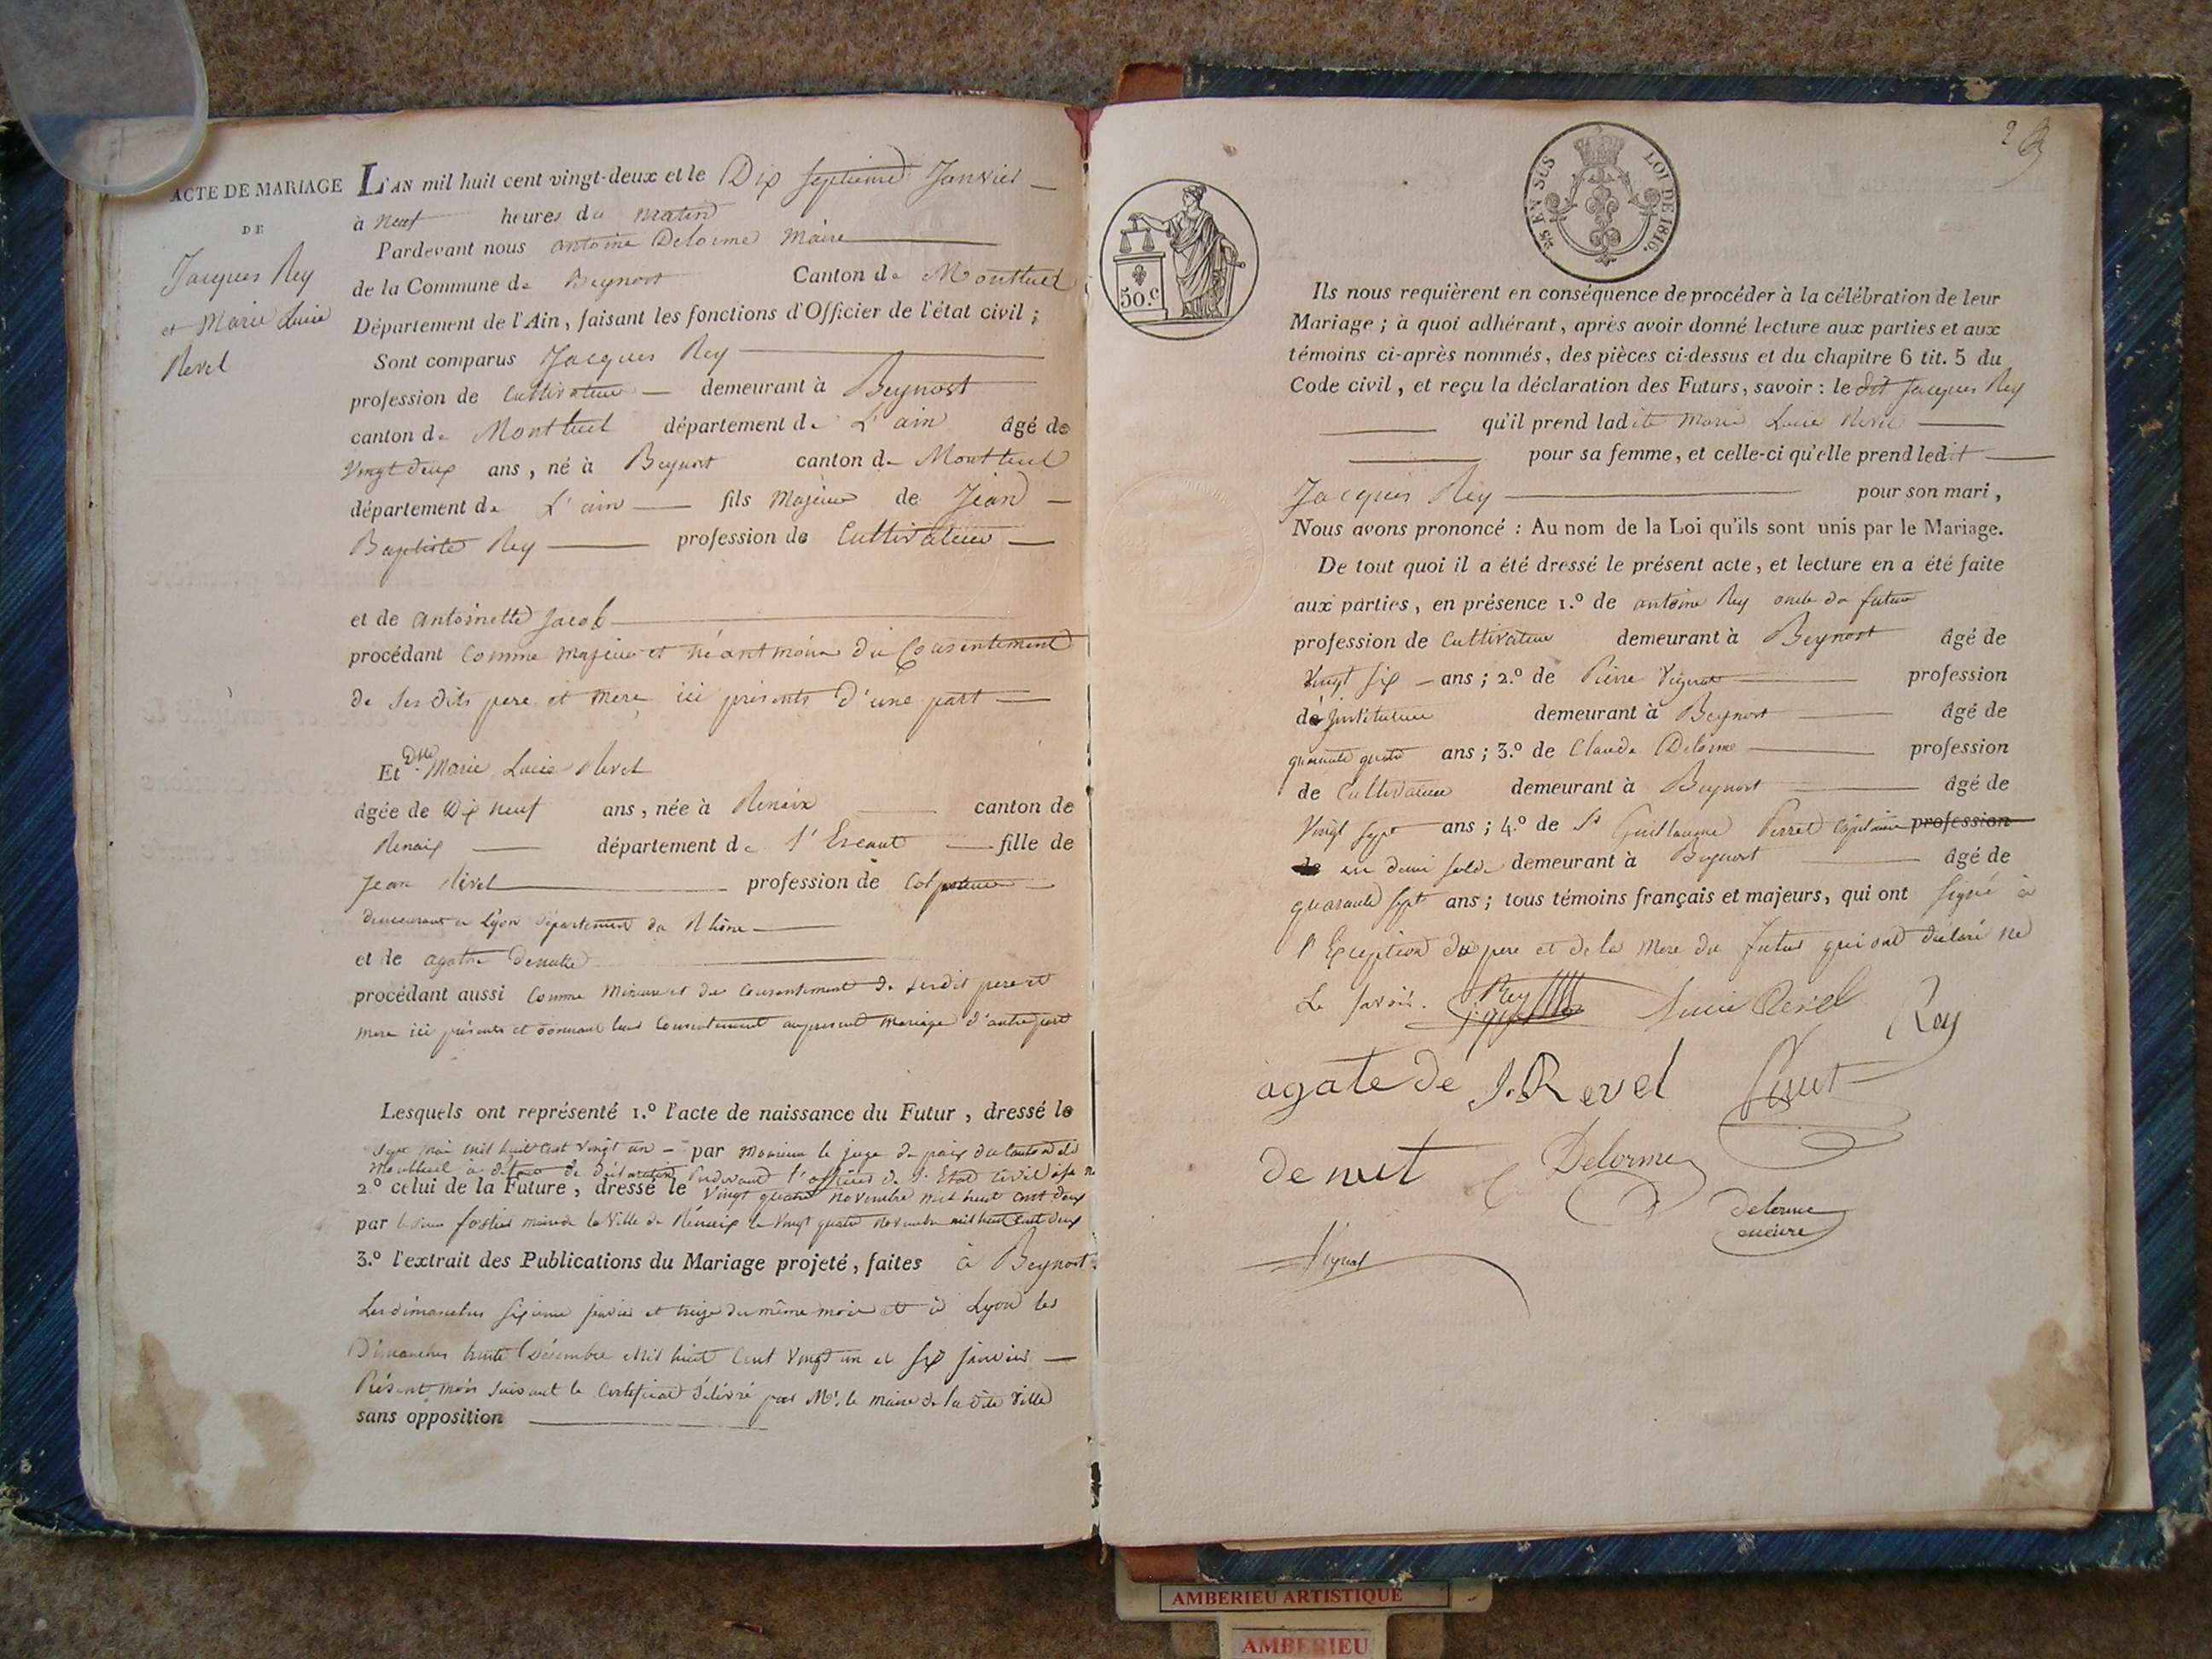 ACTE DE MARIAGE
DE
Jacques Rey
et Marie Lucie
Revel
L'AN mil huit cent vingt-deux et le Dix septieme Janvier
à neuf heures du matin
Pardevant nous antoine Delorme Maire
de la Commune de Beynost Canton de Montluel
Département de l'Ain, faisant les fonctions d'Officier de l'état civil ;
Sont comparus Jacques Rey
profession de Cultivateur demeurant à Beynost
canton de Montluel département de L'ain âgé de
Vingt deux ans, né à Beynost canton de Montluel
département de L'ain fils Majeur de Jean
Baptiste Rey profession de Cultivateur
et de antoinette Jacob
procédant comme majeur et néantmoins du Consentement
de ses dits pere et mere ici présents d'une part
Et Dlle Marie Lucie Revel
âgée de Dix neuf ans, née à Renaix canton de
Renaix département de l'Escaut fille de
Jean Revel profession de Colporteur
demeurant a Lyon département du Rhône
et de agathe Denutte
procédant aussi comme Mineure et du consentement de sesdit pere et
mere ici présents et donnant leur Consentement au present mariage d'autre part
Lesquels ont représenté 1.º l'acte de naissance du Futur, dressé le
Sept mai mil huit cent vingt un par Monsieur le juge de paix du Canton de
Montluel à défaut de déclaration Pardevant l'officier de l'Etat Civil
2º celui de la Future, dressé le Vingt quatre novembre mil huit cent deux
par le sieur fostier maire de la Ville de Renaix le Vingt quatre novembre mil huit cent deux
3.º l'extrait des Publications du Mariage projeté, faites à Beynost
Les dimanches sixieme janvier et treize du même mois et à Lyon les
Dimanches trente Décembre Mil huit Cent Vingt un et six janvier
Présent mois suivant le Certificat délivré par Mr. le maire de la dite Ville
sans opposition
2
50.c
5/5 EN SUS
LOI DE 1816.
Ils nous requièrent en conséquence de procéder à la célébration de leur
Mariage ; à quoi adhérant, après avoir donné lecture aux parties et aux
témoins ci-après nommés, des pièces ci-dessus et du chapitre 6 tit. 5 du
Code civil, et reçu la déclaration des Futurs, savoir : le dit Jacques Rey
qu'il prend ladite Marie Lucie Revel
pour sa femme, et celle-ci qu'elle prend ledit
Jacques Rey pour son mari,
Nous avons prononcé : Au nom de la Loi qu'ils sont unis par le Mariage.
De tout quoi il a été dressé le présent acte, et lecture en a été faite
aux parties, en présence 1.º de antoine Rey oncle du futur
profession de Cultivateur demeurant à Beynost âgé de
Vingt six ans ; 2.º de Pierre Vignat profession
de Jnstituteur demeurant à Beynost âgé de
quarante quatre ans ; 3.º de Claude Delorme profession
de Cultivateur demeurant à Beynost âgé de
Vingt sept ans ; 4.º de Sr Guillaume Perret Capitaine profession
de en demi solde demeurant à Beynost âgé de
quarante sept ans ; tous témoins français et majeurs, qui ont signé à
l'Exception du pere et de la mere du futur qui ont declaré ne
Le savoir. Rey Lucie Revel Rey
agate de J. Revel
denut Delorme
delorme
Vignat
AMBERIEU ARTISTIQUE
AMBERIEU